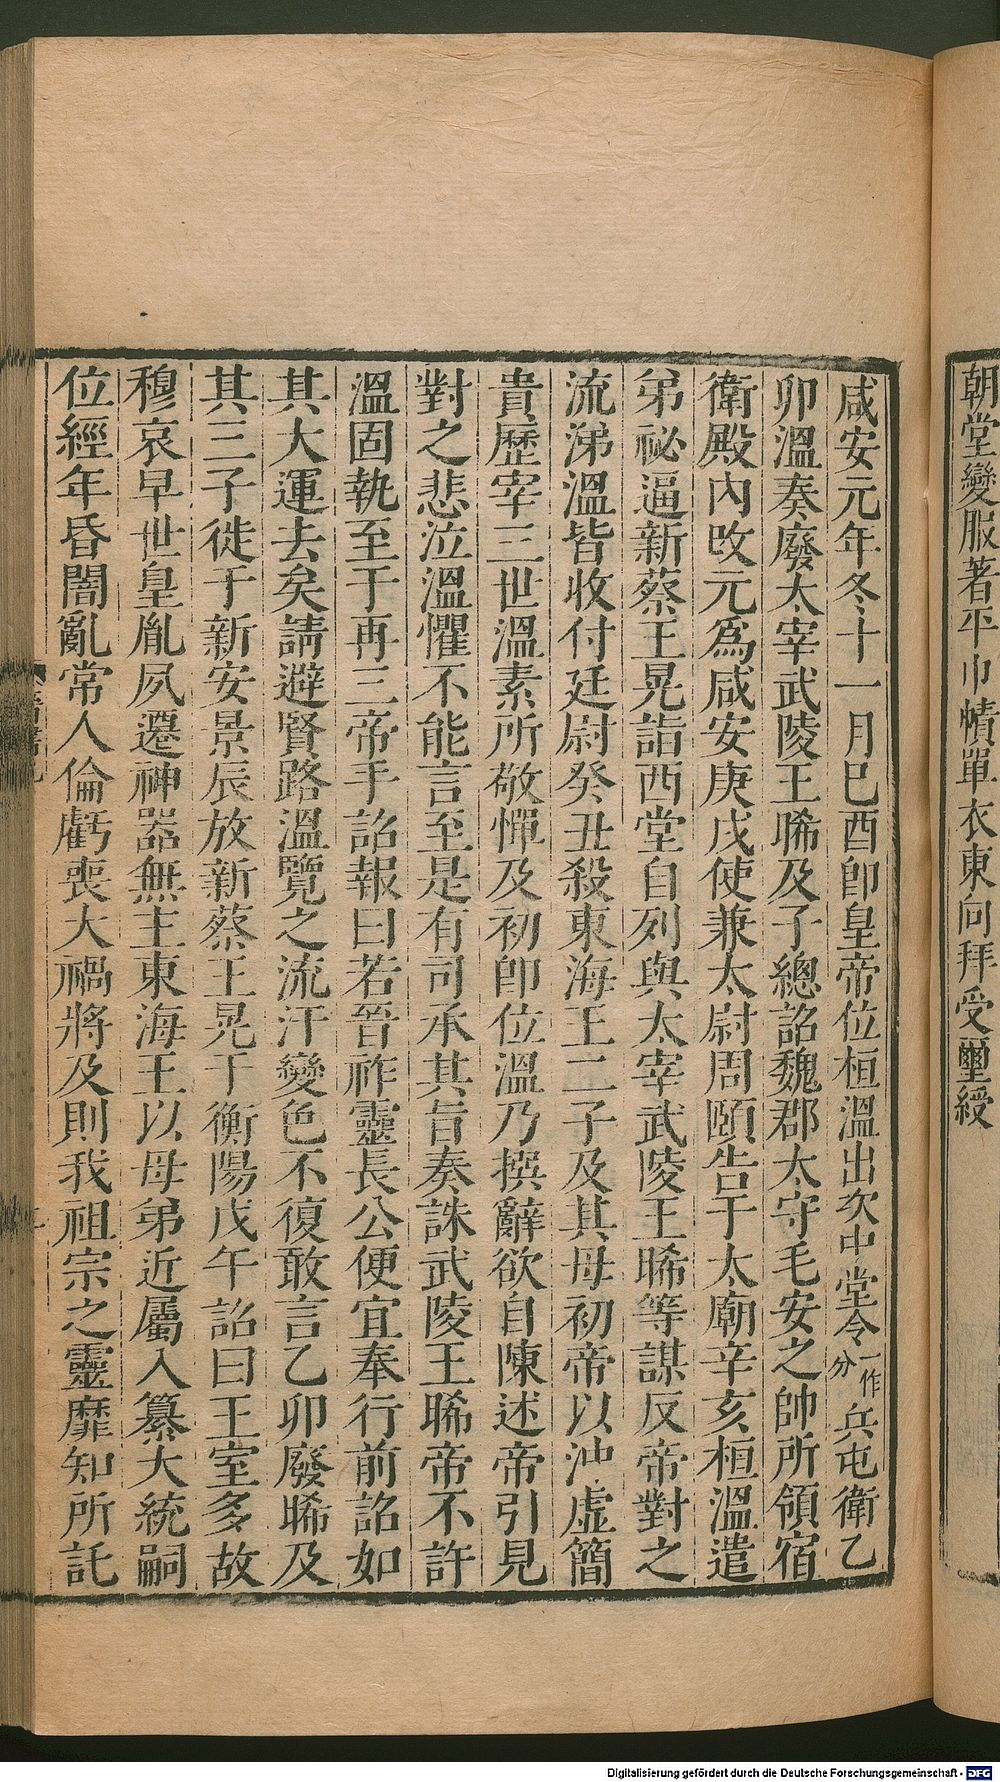 朝堂變服著平巾幘單衣東向拜受璽綬
咸安元年冬十一月巳酉卽皇帝位桓溫出次中堂令一作分兵屯衛乙
卯溫奏廢太宰武陵王晞及子總詔魏郡太守毛安之帥所領宿
衛殿內改元爲咸安庚戌使兼太尉周頤告于太廟辛亥桓溫遣
弟祕逼新蔡王晃詣西堂自列與太宰武陵王晞等謀反帝對之
流涕溫皆收付廷尉癸丑殺東海王二子及其母初帝以沖虛簡
貴歷宰三世溫素所敬憚及初卽位溫乃撰辭欲自陳述帝引見
對之悲泣溫懼不能言至是有司承其旨奏誅武陵王晞帝不許
溫固執至于再三帝手詔報曰若晉祚靈長公便宜奉行前詔如
其大運去矣請避賢路溫覽之流汗變色不復敢言乙卯廢晞及
其三子徙于新安景辰放新蔡王晃于衡陽戊午詔曰王室多故
穆哀早世皇胤夙遷神器無主東海王以母弟近屬入纂大統嗣
位經年昏闇亂常人倫虧喪大禍將及則我祖宗之靈靡知所託
Digitalisierung gefördert durch die Deutsche Forschungsgemeinschaft - DFG